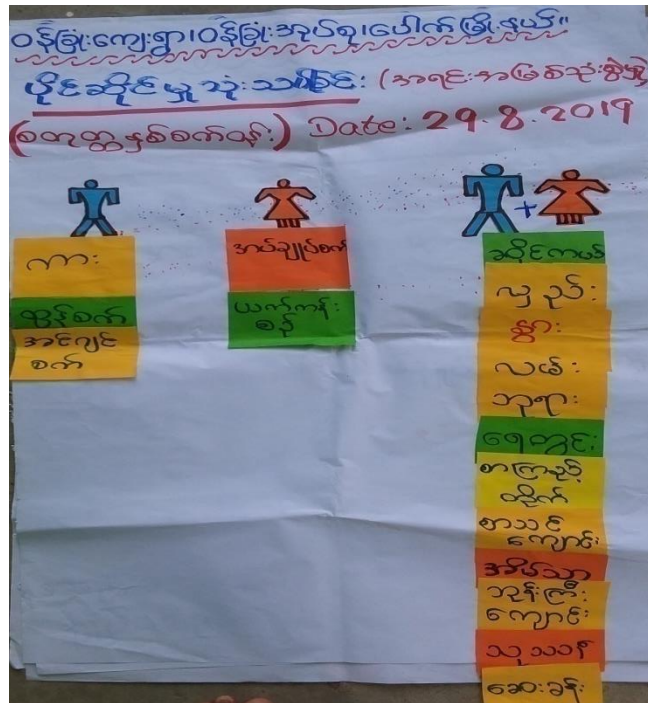 ဝန်ခြုံးကျေးရွာ၊ဝန်ခြုံးအုပ်စု၊ပေါက်မြို့နယ်။
ပိုင်ဆိုင်မှုသုံးသပ်ခြင်း (အရင်းအမြစ်သုံးစွဲမှု)
(စတုတ္ထနှစ်စက်ဝန်း) Date: 29.8.2019
+
ကား
ထွန်စက်
အင်ဂျင်
စက်
အပ်ချုပ်စက်
ယက်ကန်း
စင်
ဆိုင်ကယ်
လှည်း
နွား
လမ်း
ဘုရား
ရေတွင်း
စာကြည့်
တိုက်
စာသင်
ကျောင်း
အိမ်သာ
ဘုန်းကြီး
ကျောင်း
သုသာန်
ဆေးခန်း